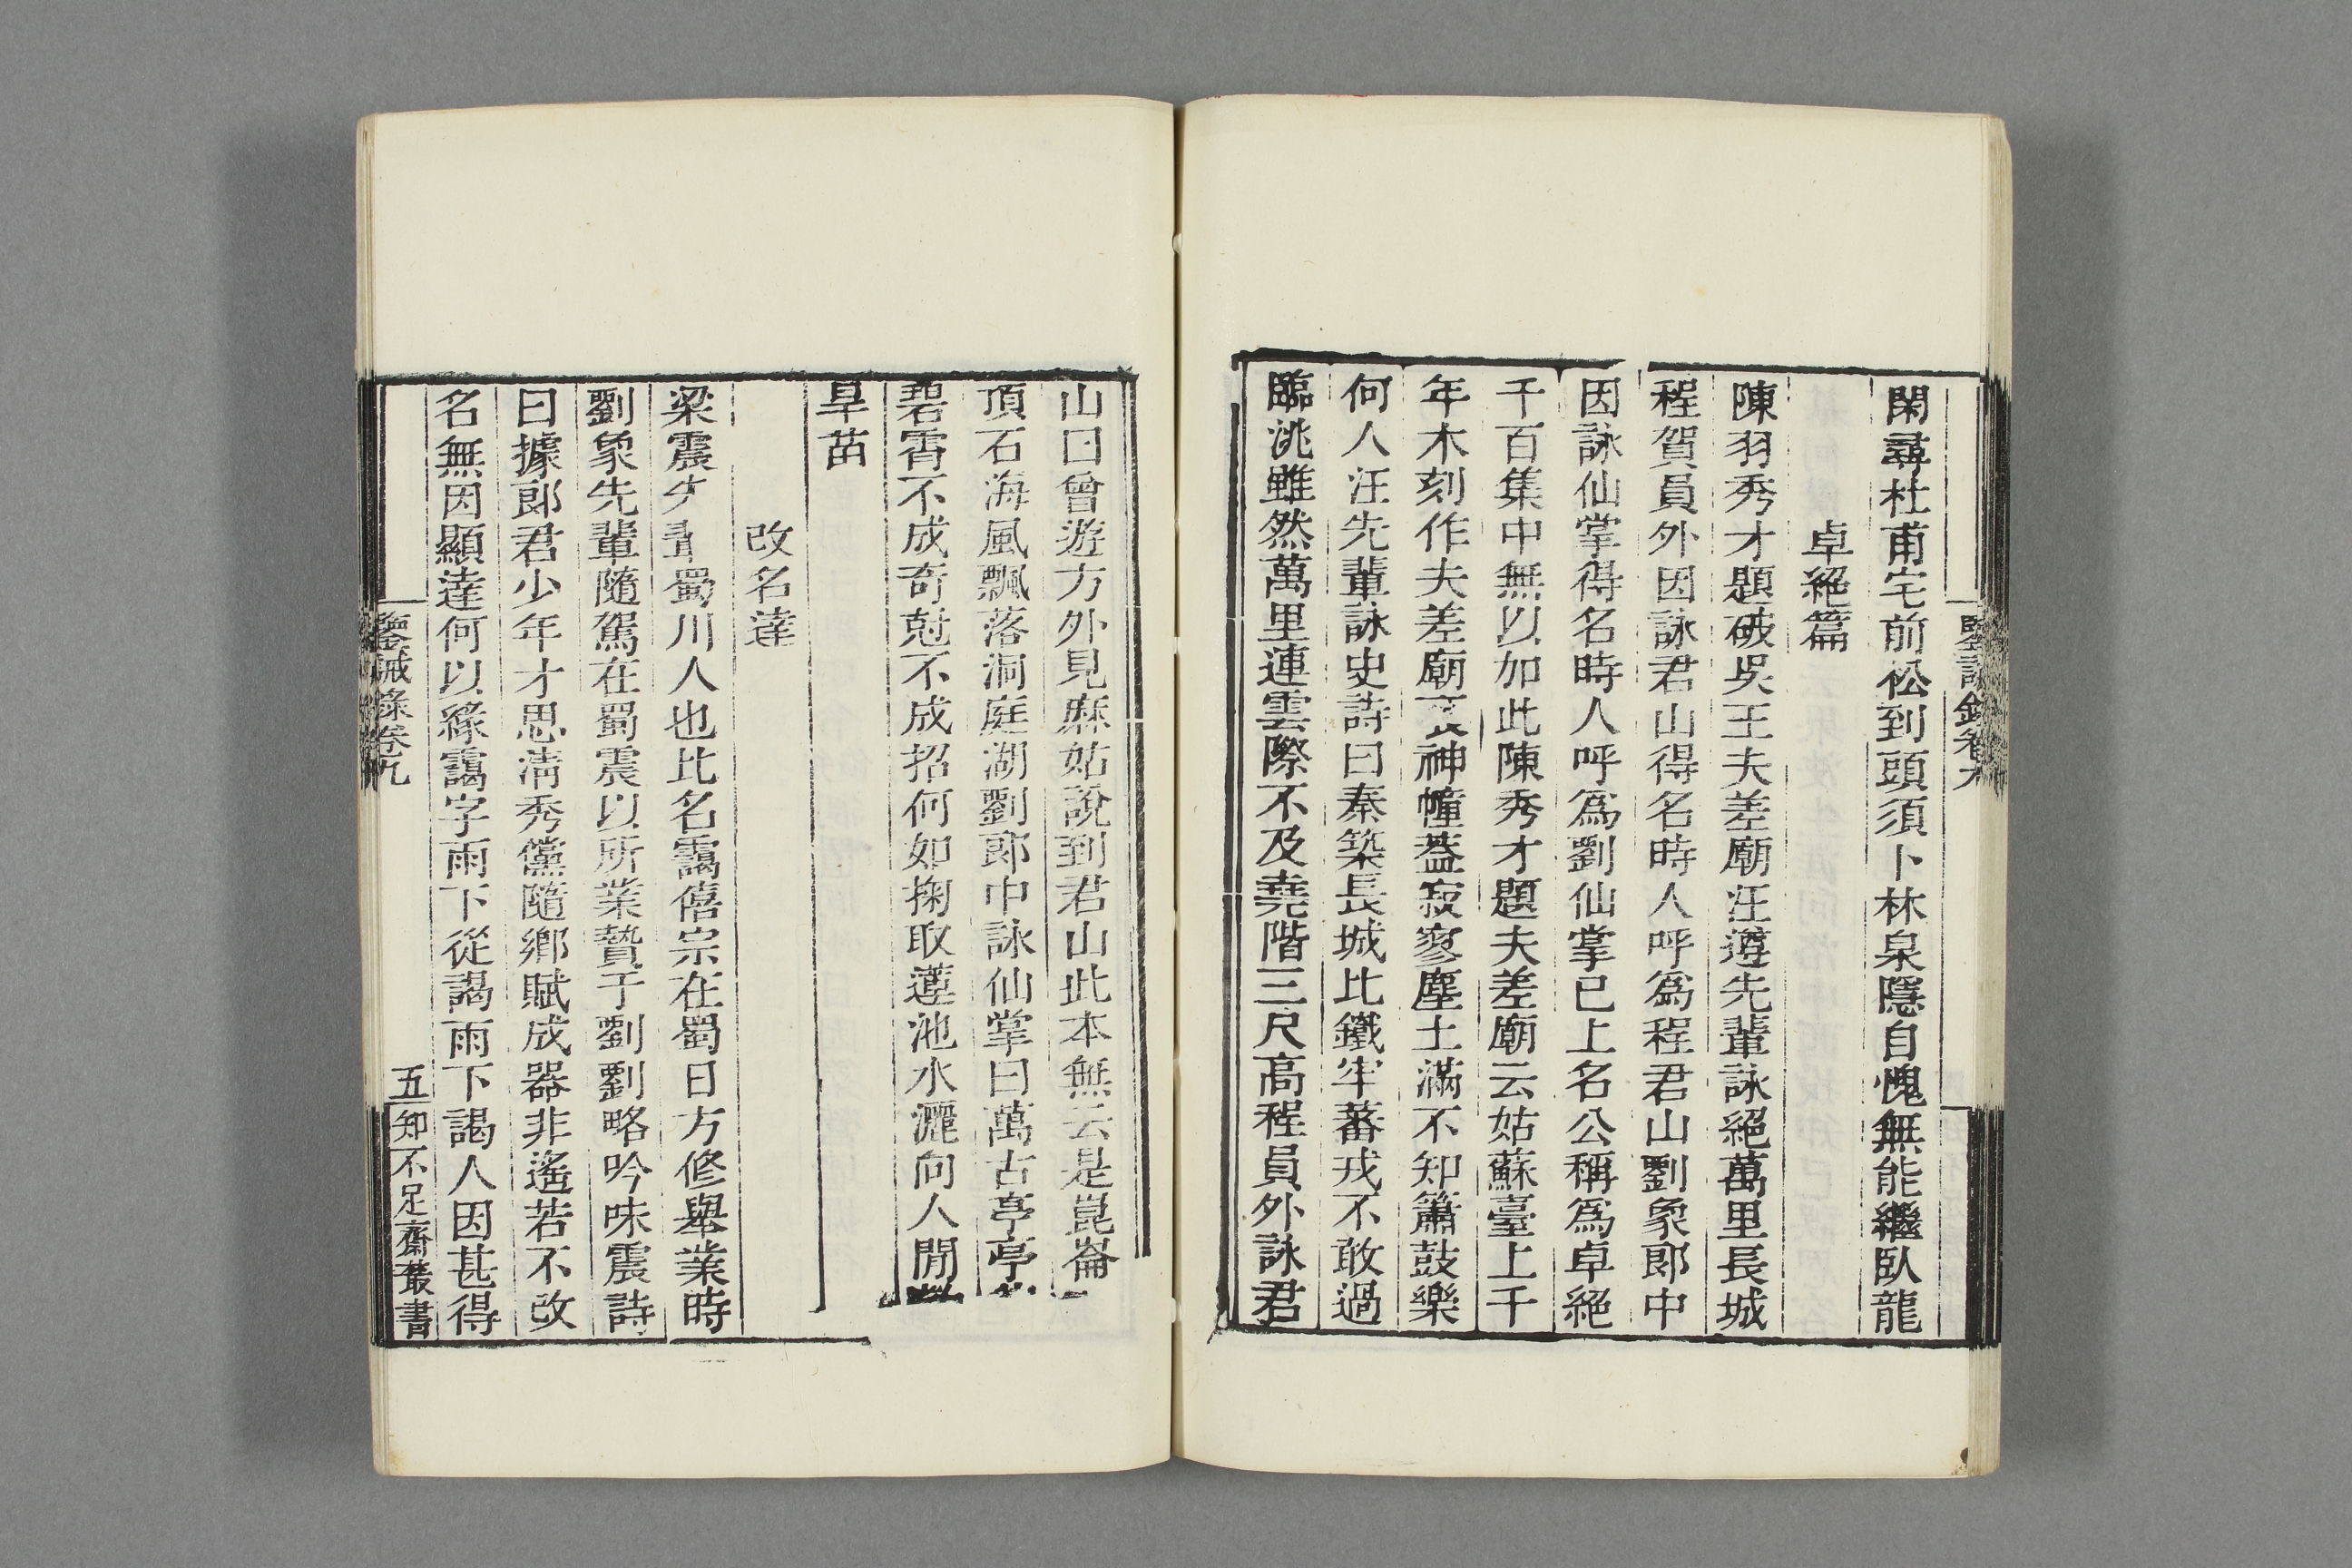 鑒誡錄卷九
閑尋杜甫宅前松到頭須卜林泉隱自愧無能繼臥龍
卓絕篇
陳羽秀才題破吳王夫差廟汪遵先輩詠絕萬里長城
程賀員外因詠君山得名時人呼爲程君山劉象郎中
因詠仙掌得名時人呼爲劉仙掌已上名公稱爲卓絕
千百集中無以加此陳秀才題夫差廟云姑蘇臺上千
年木刻作夫差廟裏神幢蓋寂寥塵土滿不知簫鼓樂
何人汪先輩詠史詩曰秦築長城比鐵牢蕃戎不敢過
臨洮雖然萬里連雲際不及堯階三尺高程員外詠君
山曰曾遊方外見麻姑說到君山此本無云是崑崙
頂石海風飄落洞庭湖劉郎中詠仙掌曰萬古亭亭
碧霄不成奇尅不成招何如掬取蓮池水灑向人間
旱苗
改名達
梁震蜀川人也比名靄僖宗在蜀日方修舉業時
劉象先輩隨駕在蜀震以所業贄于劉劉略吟味震詩
曰據郎君少年才思清秀儻隨鄉賦成器非遙若不改
名無因顯達何以緣靄字雨下從謁雨下謁人因甚得
鑒誡錄卷九
五
知不足齋叢書